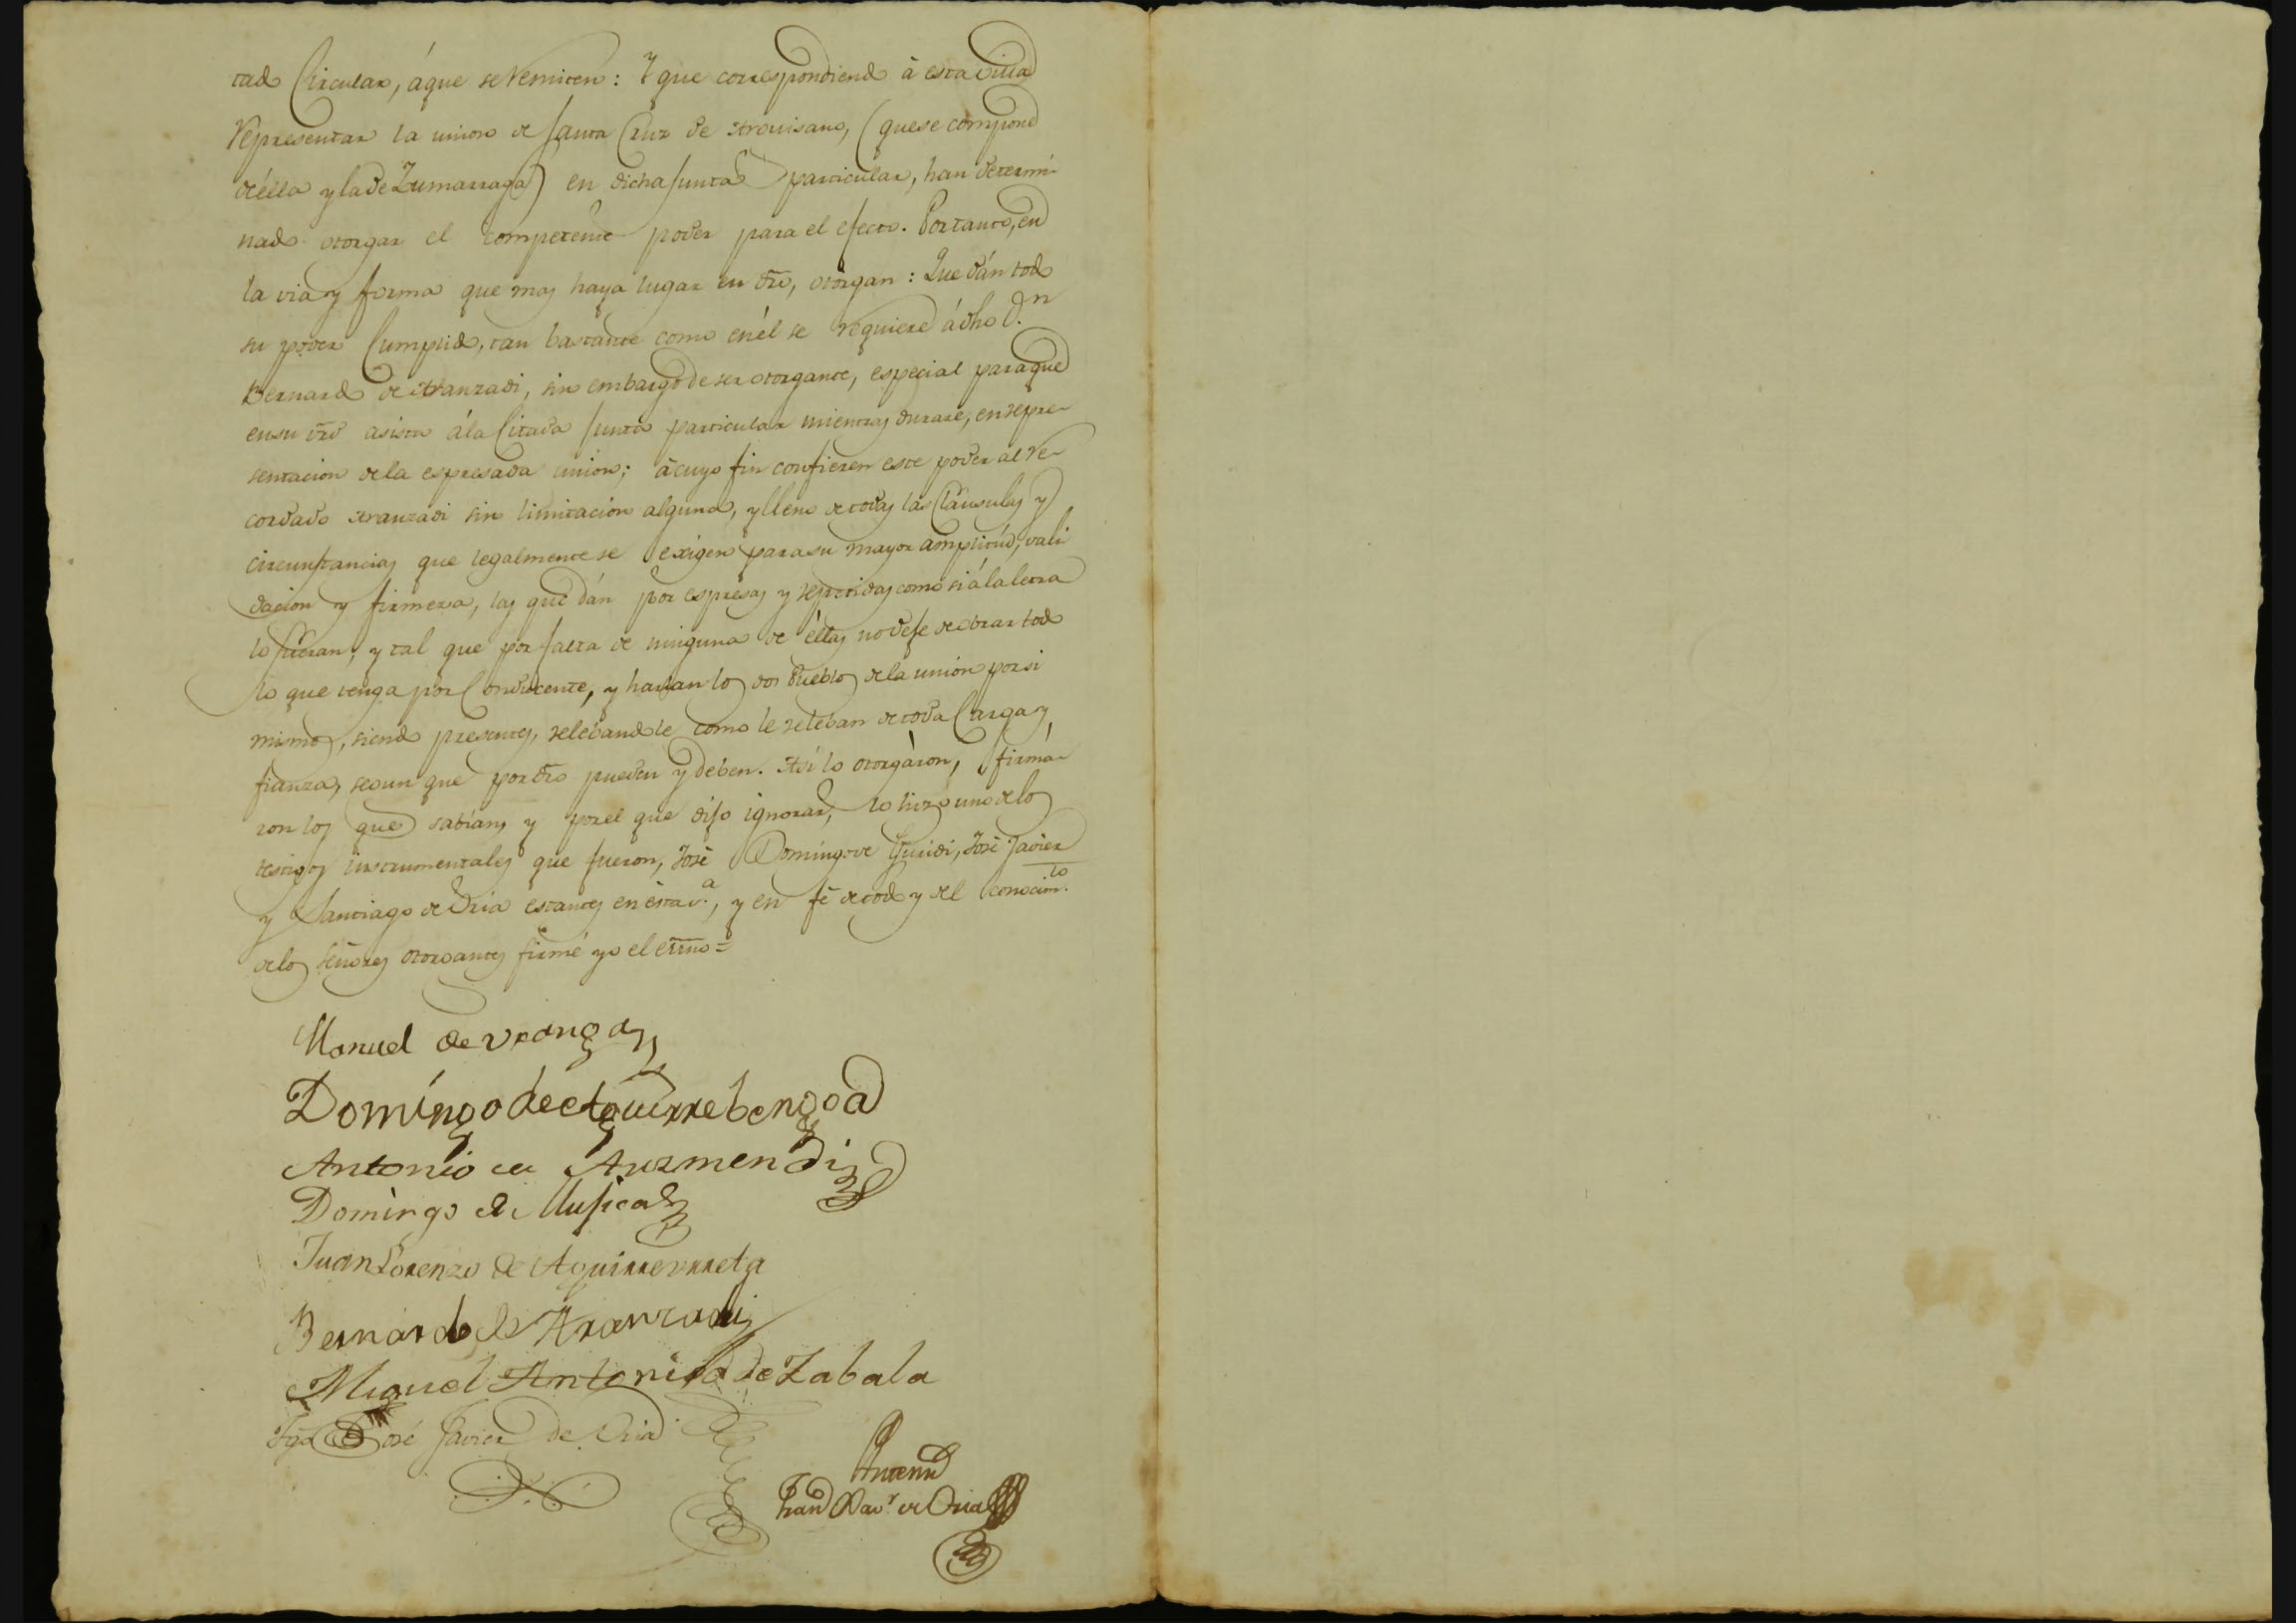 tado Circular, áque se remiten: Y que correspondiendo á esta Villa
representar la union de Santa Cruz de Arguisano, (que se compone
de élla y la de Zumarraga) en dicha Junta particular, han determi-
nado otorgar el competente poder para el efecto. Por tanto, en
la via y forma que mas haya lugar en dro, otorgan: Que dán todo
su poder Cumplido, tan bastante como en él se requiere á dho D.n
Bernardo de Aranzadi, sin embargo de ser otorgante, especial para que
en su nre asista á la Citada Junta particular mientras durare, en repre-
sentacion de la espresada union; á cuyo fin confieren este poder al re-
cordado Aranzadi sin limitacion alguna, y lleno de todas las Cláusulas y
circunstancias que legalmente se exigen para su mayor amplitúd, vali
dacion y firmeza, las que dán por espresas y repetidas como si á la letra
lo fueran; y tal que por falta de ninguna de éllas no deje de obrar todo
lo que tenga por Conducente, y harian los dos Pueblos de la unión por si
mismos, siendo presentes, relebandole como le releban de toda Carga y
fianza, segun que por dro pueden y deben. Asi lo otorgáron, firmá-
ron los que sabían, y por el que dijo ignorar, lo hizo uno de los
testigos instrumentales que fueron, José Domingo de Yturidi, José Javier
y Santiago de Oria estantes en ésta v.a, y en fé de todo y del conocim.to
de los señores otorgantes firmé yo el essno =
Manuel de Vranga
Domingo de Aguirrebengoa
Antonio de Auzmendi
Domingo de Mujica
Juan Lorenzo de Aguirreurreta
Bernardo de Aranzadi
Miguel Antonio de Zabala
Tgo José Javier de Oria
Antemi
Fran.co Xav.r de Oria